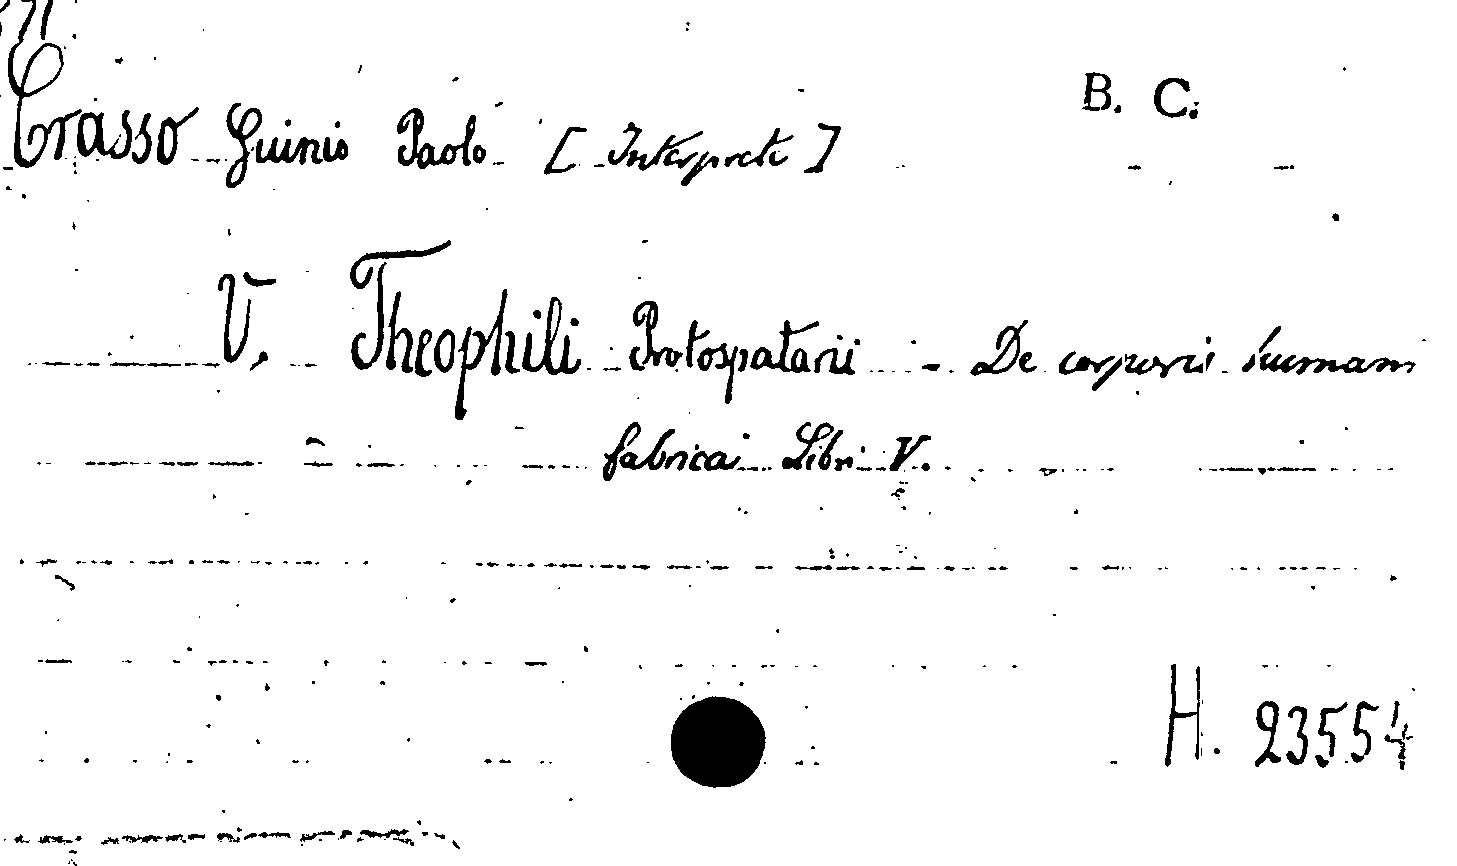 B. C.
Crasso Guinio Paolo [Interprete]
V. Theophili Protospatarii - De corporis humani
fabricai Libri V.
H. 23554